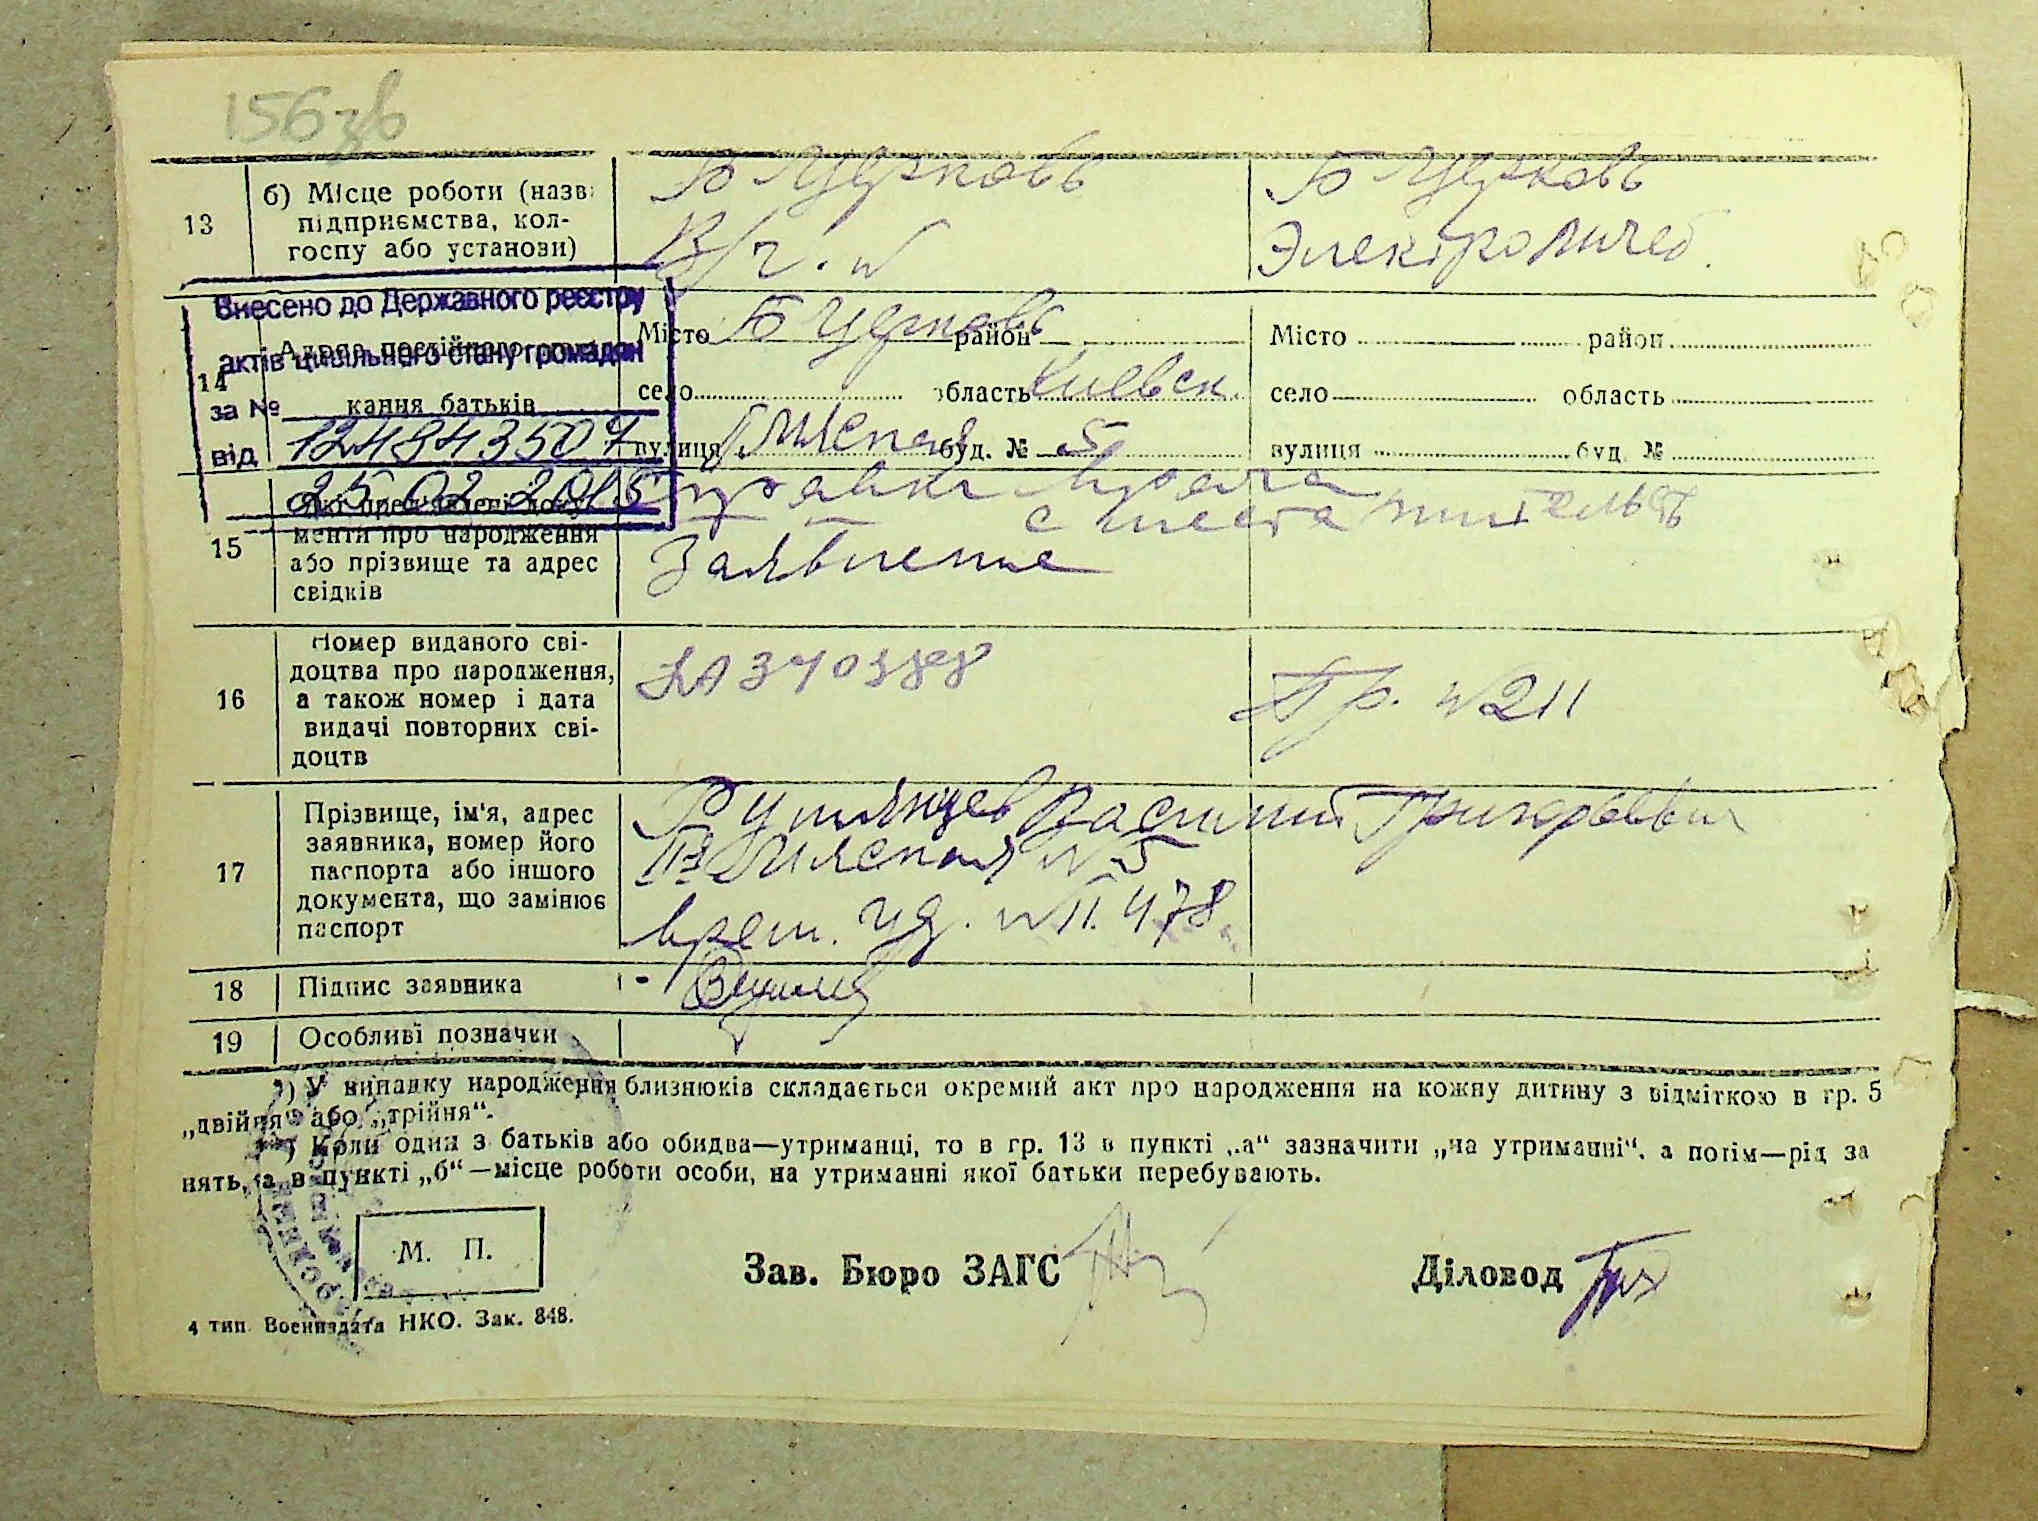 156 зв
13
б) Місце роботи (назв
підприємства, кол-
госпу або установи)
Б Церковь
В/ч. №
Б Церковь
Электролечеб.
Внесено до Державного реєстру
актів цивільного стану громадян
за №
124843507
від
25 02 2015
14
Адреса постійного
кання батьків
Місто Б Церковь район
село область Киевск.
вулиця буд. № 5
Місто район
село область
вулиця буд. №
15
Які пред'явлені доку
менти про народження
або прізвище та адрес
свідків
Справка врача
с места жительств
Заявление
16
Номер виданого сві-
доцтва про народження,
а також номер і дата
видачі повторних сві-
доцтв
3403888
Пр. № 211
17
Прізвище, ім'я, адрес
заявника, номер його
паспорта або іншого
документа, що замінює
паспорт
Василий Григорьевич
№ 5
врем. уд. № 11.478
18
Підпис заявника
19
Особливі позначки
*) У випадку народження близнюків складається окремий акт про народження на кожну дитину з відміткою в гр. 5
„двійня“ або „трійня“.
**) Коли один з батьків або обидва—утриманці, то в гр. 13 в пункті „а“ зазначити „на утриманні“, а потім—рід за
нять, а в пункті „б“—місце роботи особи, на утриманні якої батьки перебувають.
М. П.
Зав. Бюро ЗАГС
Діловод
4 тип. Воениздата НКО. Зак. 848.